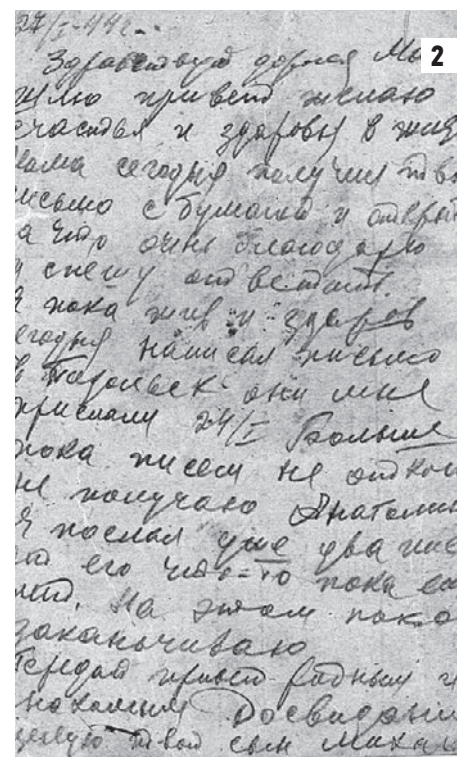 27/I-44г.
2
Здравствуй дорогая Ма
шлю привет желаю
счастья и здоровья в жиз
мама сегодня получил тво
письмо с бумагой и открыт
за что очень благодарю
и спешу ответить.
я пока жив и здоров
сегодня написал письмо
в Тобольск они мне
прислали 24/I Больше
пока писем не от ко
не получаю Анатолию
я послал уже два пис
от его что-то пока ещ
нет. На этом пока
заканчиваю
Передай привет родным и
знакомым Досвидания
целую твой сын Михаил